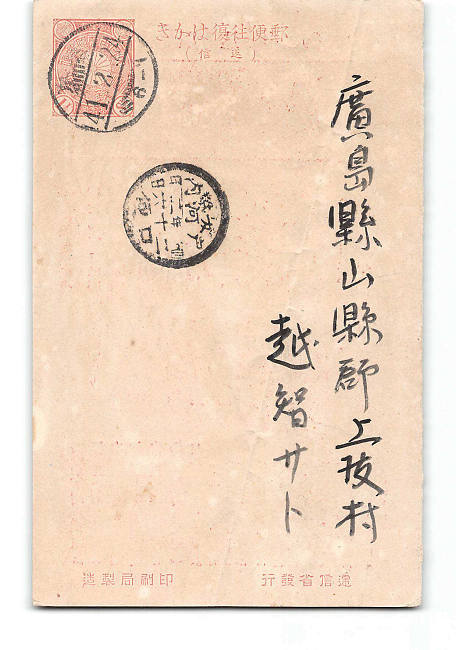 郵便往復はかき
(返信)
41.2.24
廣島縣山縣郡上坂村
越智サト
遞信省發行
印刷局製造